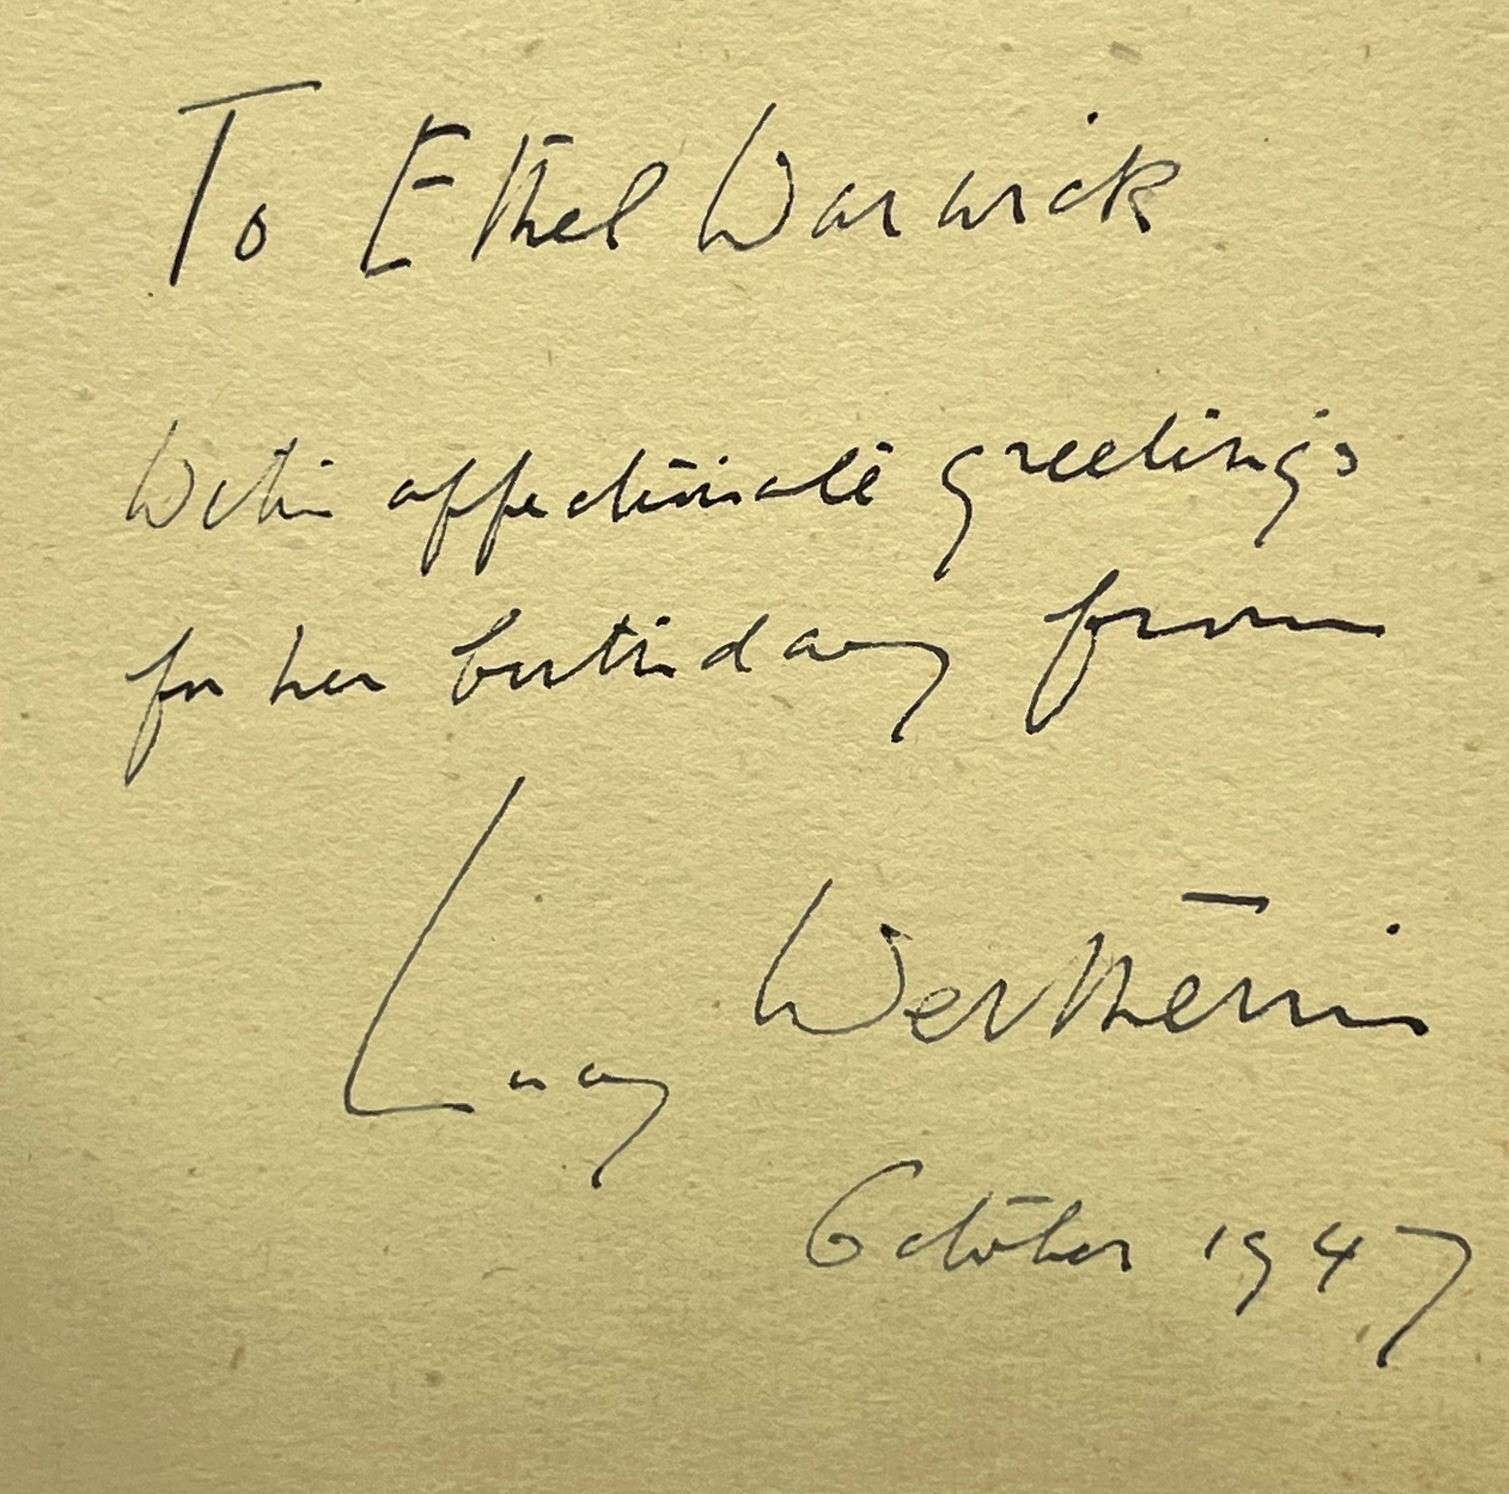 To Ethel Warwick
With affectionate greetings
for her birthday from
Lucy Wertheim
October 1947